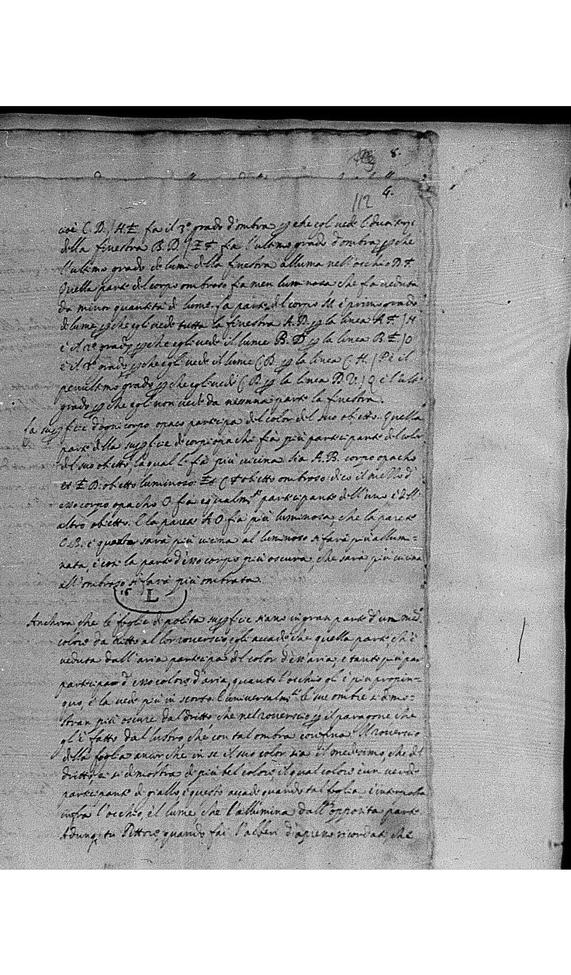 8.
G.
112
cioè C.D./H Z fa il 3º grado d'ombra che egl vede l'
della finestra B.D/Z fa l'ultimo grado d'ombra che
l'ultimo grado de lume della finestra alluma nell'occhio
Quella parte del corpo ombroso fia men luminosa che fia veduta
da minor quantità di lume. la parte del corpo M è primo grado
di lume che egli vede tutta la finestra A.D la linea A /H
è il 2º grado che egli vede il lume B.D la linea B Z/O
è il 3º grado che egli vede il lume C.D la linea C H/P è il
penultimo grado che egl vede C.D la linea D.V/Q è l'ulti-
grado che egl non vede da nessuna parte la finestra.
La supficie d'ogni corpo opaco participa del color del suo obietto. Quella
parte della supficie de corpi opachi fia più participante del colore
del suo obietto, la qual li fia più vicina. Sia A.B. corpo opacho
et Z D. obietto luminoso et C obietto ombroso dico il mezzo d'
esso corpo opacho O. fia equalmte participante dell'uno e dell'
altro obietto. E la parete A O fia più luminosa, che la parete
O B. e quanto sarà più vicina al luminoso si farà più allumi-
nata, e così la parte d'esso corpo più oscura, che sarà più vicina
all'ombroso si farà più ombrata.
16 L
Anchora che le foglie de polita supficie siano in gran parte d'un med.
colore da dritto al lor rovercio, egli accade che quella parte, ch'è
veduta dall'aria participa del color d'essa aria, e tanto più par
participare d'esso colore d'aria, quanto l'occhio gl' è più propin-
quo, e la vede più in scorto. E universalmte le sue ombre si dimo-
stran più oscure dal dritto che nel rovercio il paragone che
gl' è fatto dal lustro che con tal ombra confina. Il rovercio
della foglia ancor che in se il suo color sia il medesimo che del
dritto, si dimostra di più bel colore, il qual colore è un verde
participante di giallo e questo accade quando tal foglia è interposta
infra l'occhio, e 'l lume che l'allumina dall'opposita parte
Adunq. tu Pittore, quando fai l'alberi d'apresso ricordati che